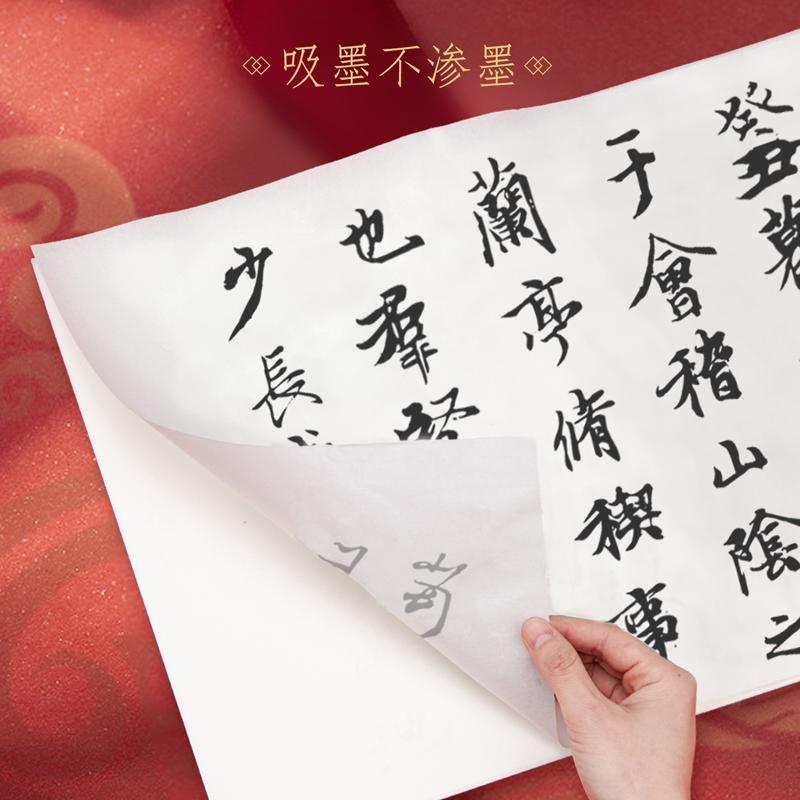 吸墨不渗墨
癸丑暮
于會稽山陰之
蘭亭脩稧事
也羣賢
少長